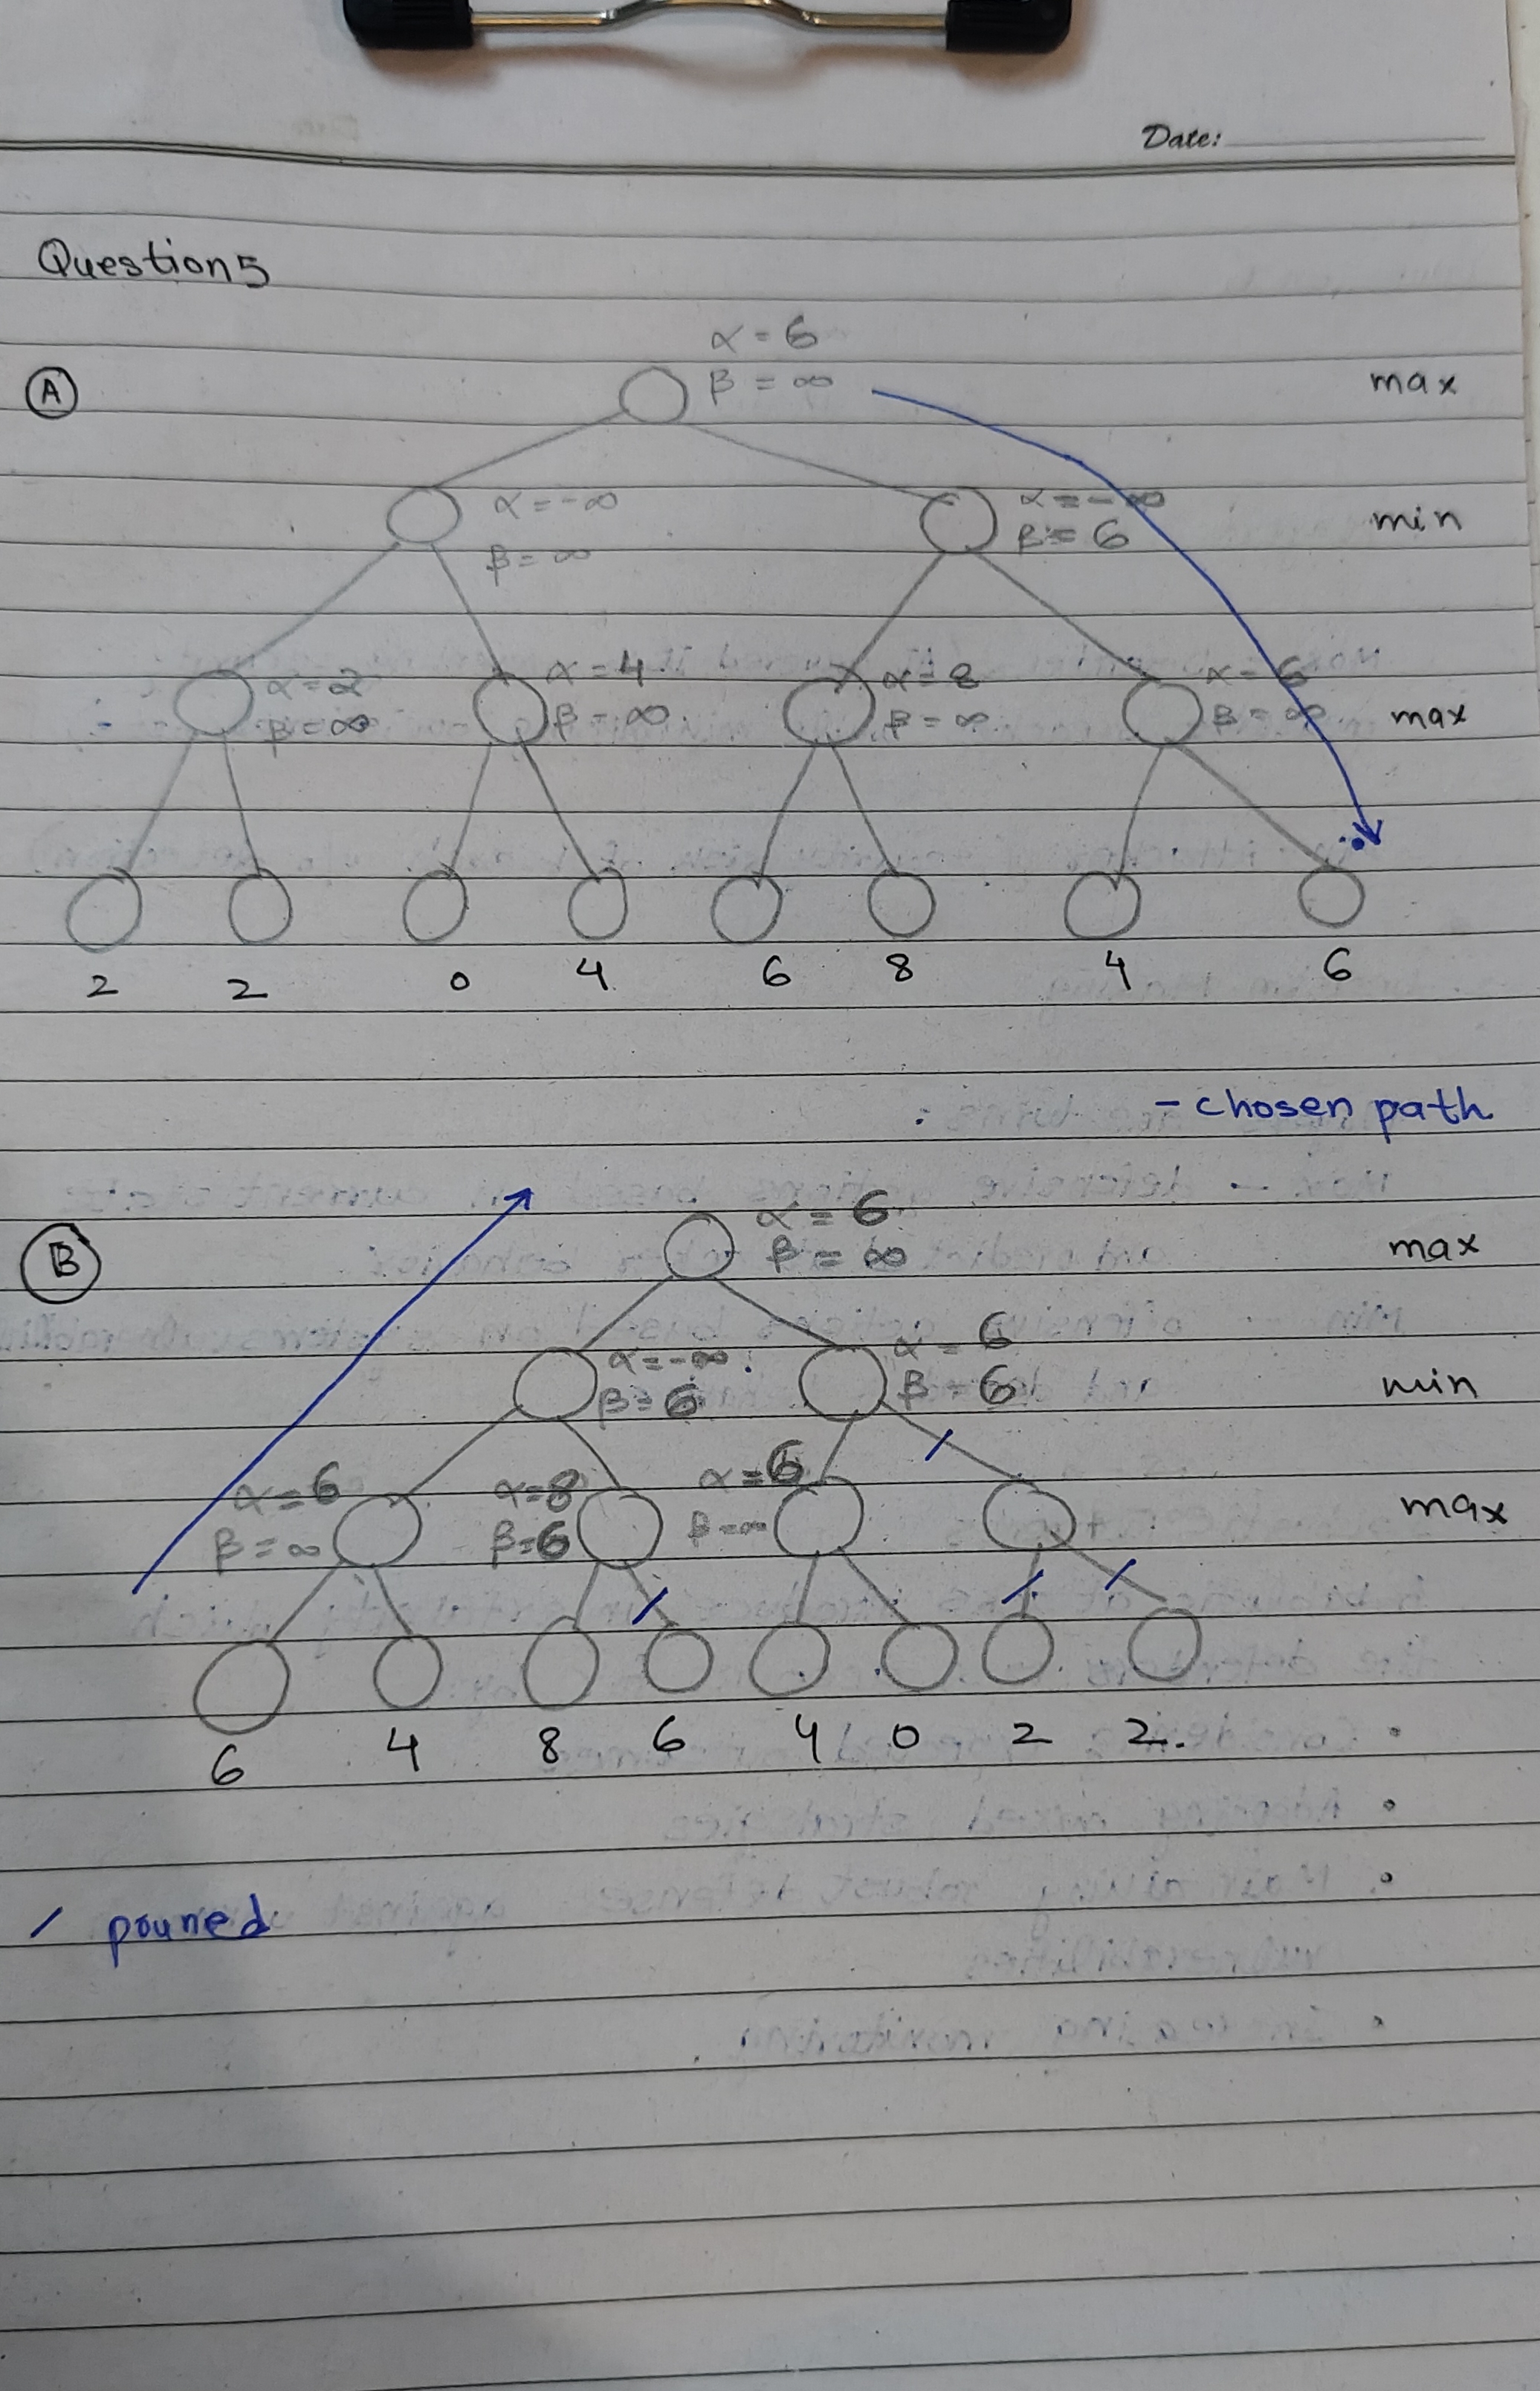 Date:
Question 5
α = 6
A
β = ∞
max
α = -∞
α = -∞
min
β = ∞
β = 6
α = 2
α = 4
α = 8
α = 6
β = ∞
β = ∞
β = ∞
β = ∞
max
2 2 0 4 6 8 4 6
- chosen path
B
α = 6
β = ∞
max
α = -∞
α = 6
β = 6
β = 6
min
α = 6
α = 8
α = 6
β = ∞
β = 6
β = ∞
max
6 4 8 6 4 0 2 2.
/ pruned